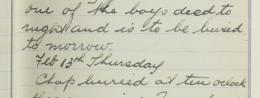 one of the boys died to
night and is to be buried
to morrow.
Feb 13th Thursday
Chap buried at ten oclock